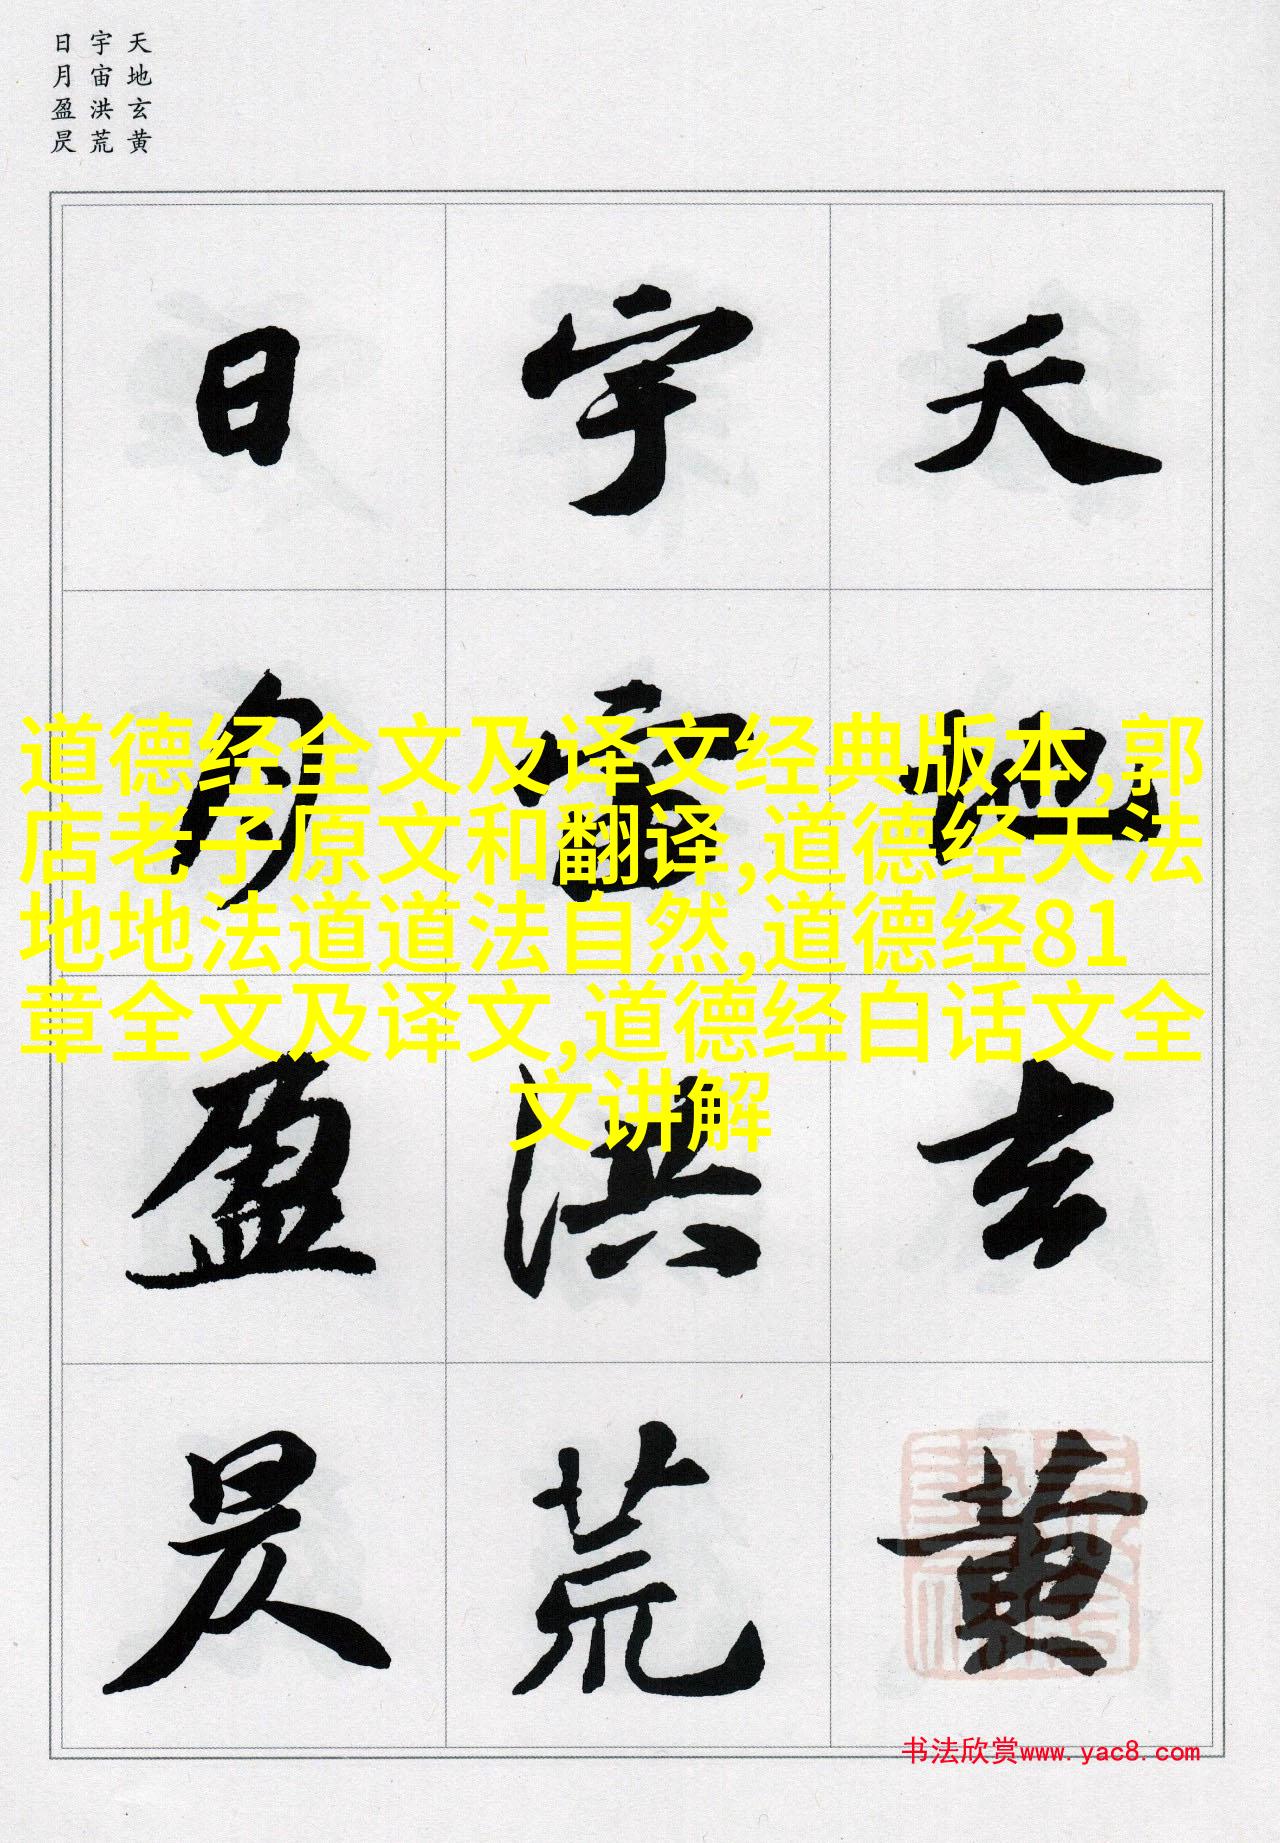 天地玄黄
宇宙洪荒
日月盈昃
天地玄黄
宇宙洪荒
日月盈昃
道德经全文及译文经典版本,郭
店老子原文和翻译,道德经天法
地地法道道法自然,道德经81
章全文及译文,道德经白话文全
文讲解
书法欣赏www.yac8.com